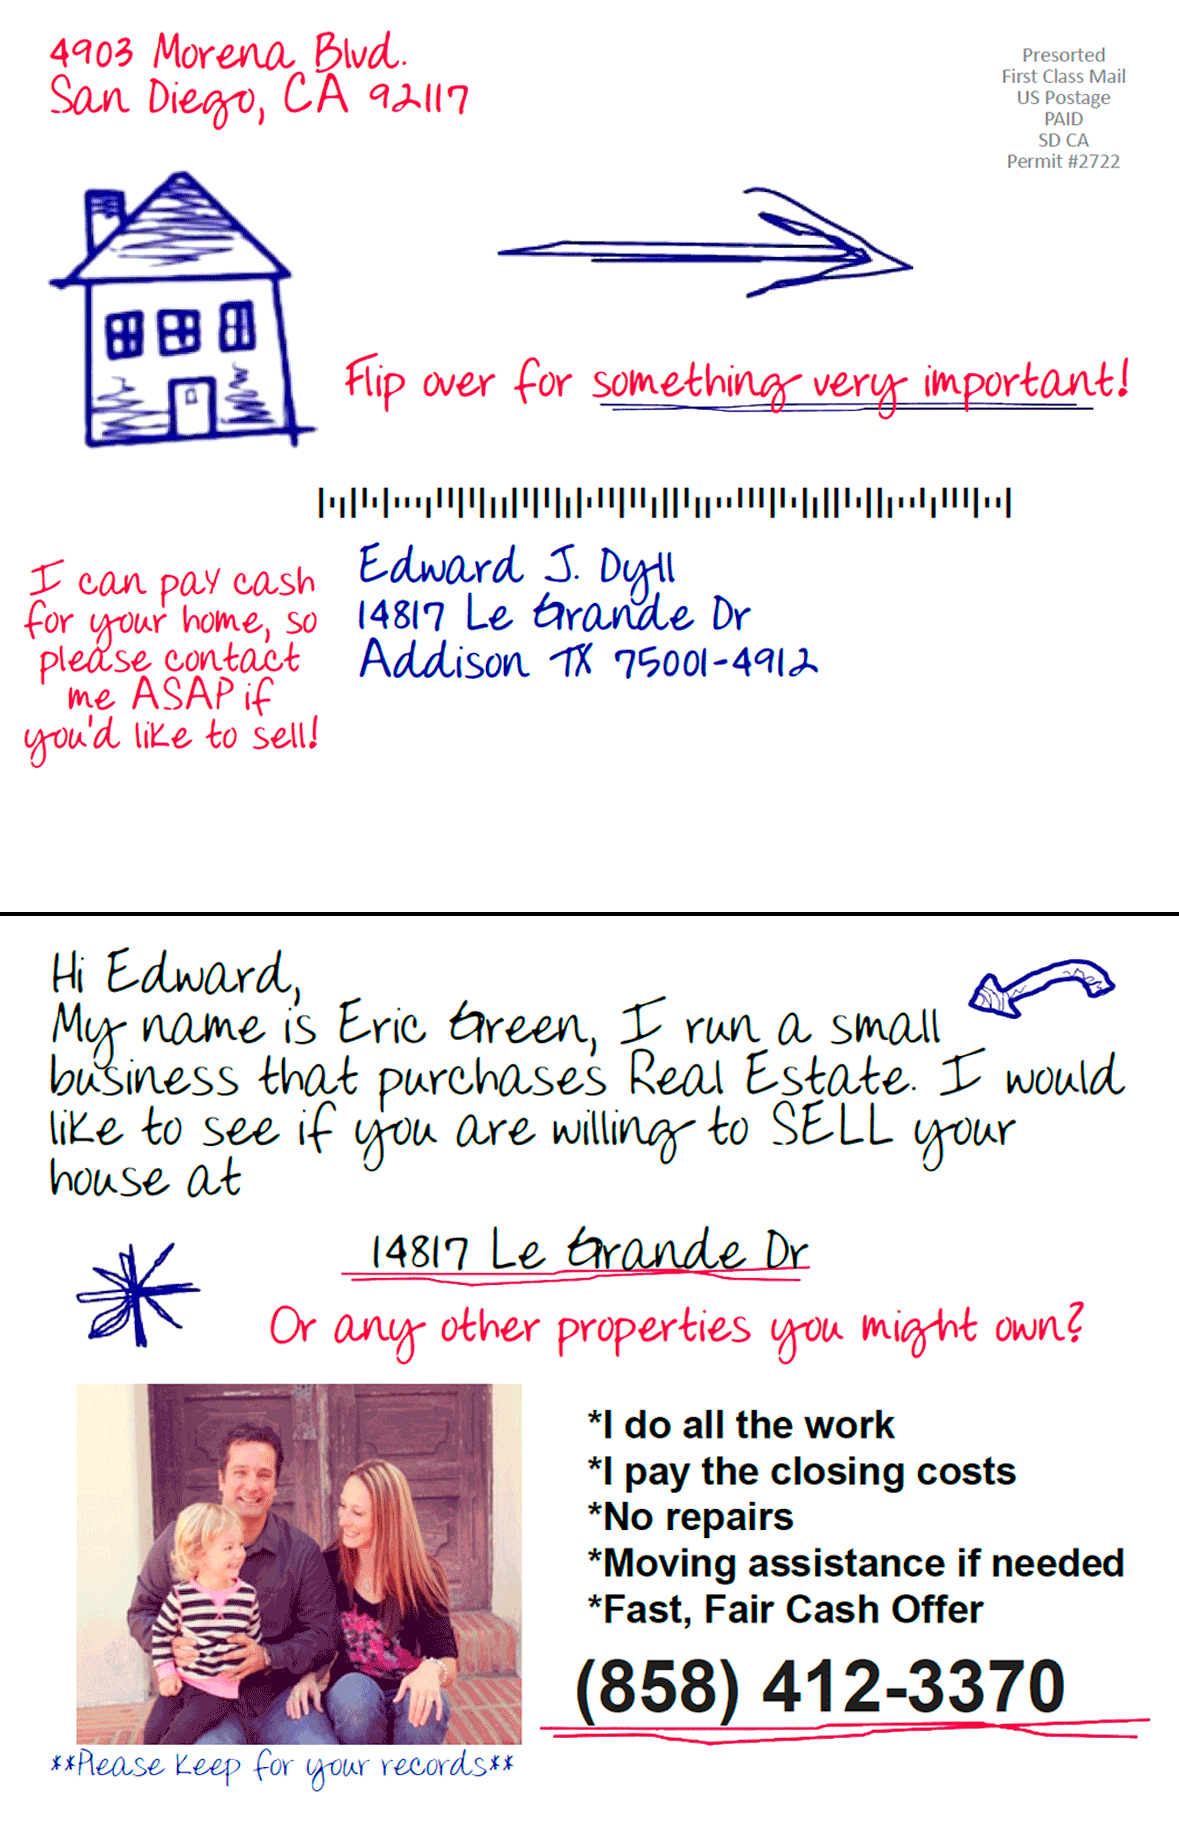 4903 Morena Blvd.
San Diego, CA 92117
Presorted
First Class Mail
US Postage
PAID
SD CA
Permit #2722
Flip over for something very important!
I can pay cash
for your home, so
please contact
me ASAP if
you'd like to sell!
Edward J. Dyll
14817 Le Grande Dr
Addison TX 75001-4912
Hi Edward,
My name is Eric Green, I run a small
business that purchases Real Estate. I would
like to see if you are willing to SELL your
house at
14817 Le Grande Dr
Or any other properties you might own?
*I do all the work
*I pay the closing costs
*No repairs
*Moving assistance if needed
*Fast, Fair Cash Offer
(858) 412-3370
**Please keep for your records**